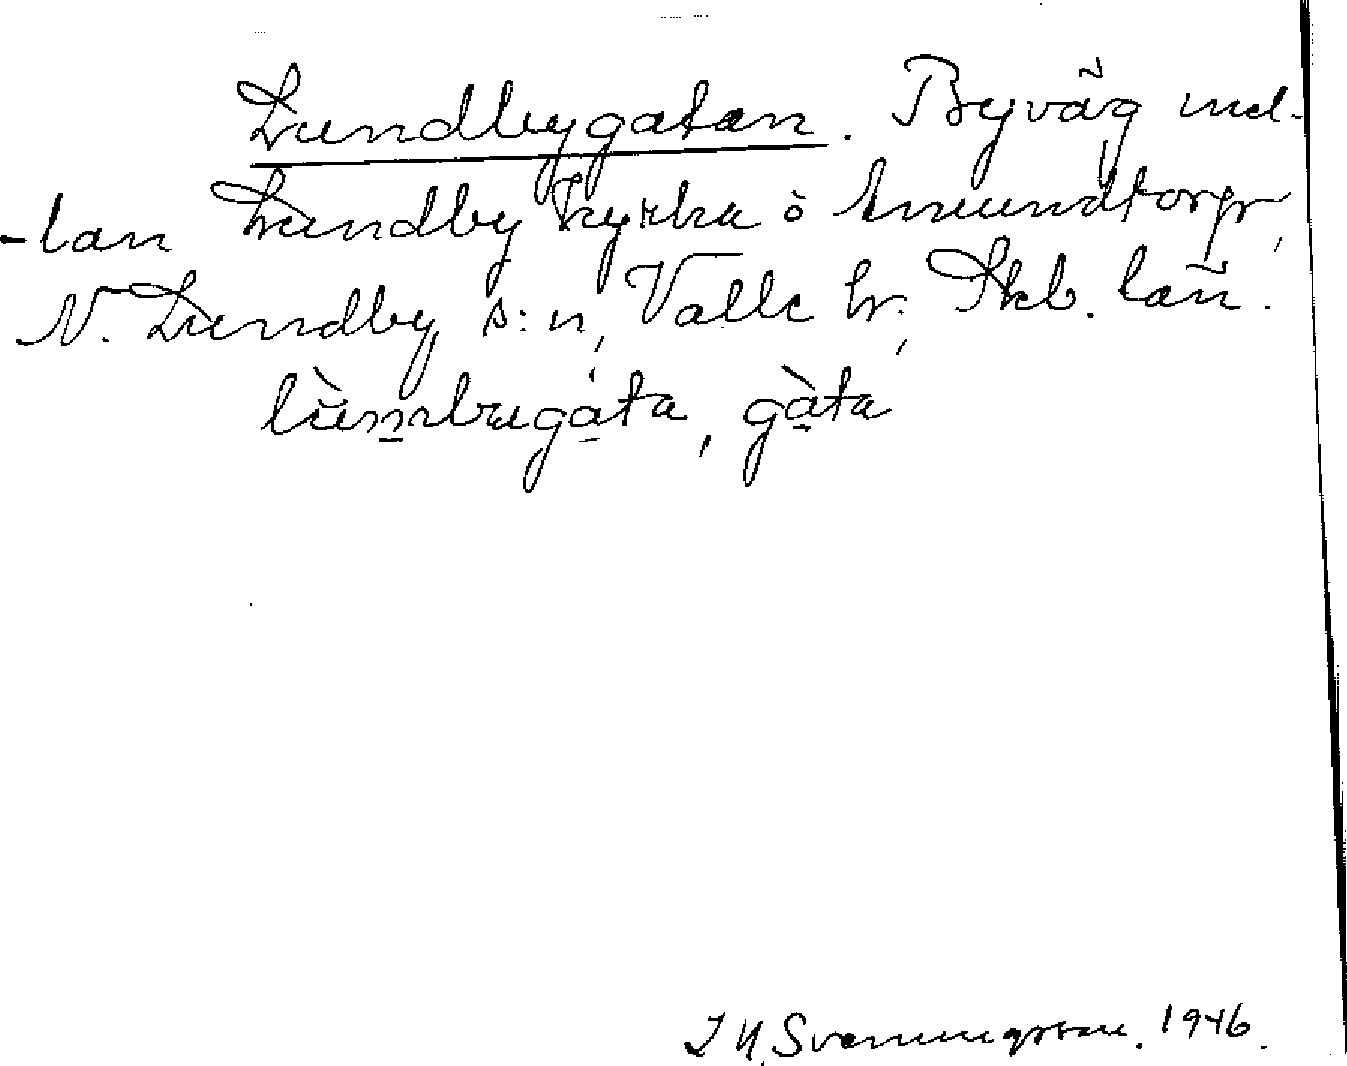 Lundbygatan. Byväg mel-
-lan Lundby kyrka o Amundtorp,
N. Lundby s:n, Valle hr. Skb. län.
lùmbugáta, gàta
Svenningsson. 1946.